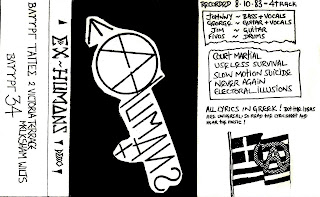 BAYYPT TAPES 2 VICTORIA TERRACE
MELKSHAM WILTS
BAYYPT 34
EX-HUMANS DEMO
EX
HUMANS
RECORDED 8·10·83 - 4 TRACK
JOHNNY ~ BASS + VOCALS
GEORGE ~ GUITAR + VOCALS
JIM ~ GUITAR
FIVOS ~ DRUMS
COURT MARTIAL
USELESS SURVIVAL
SLOW MOTION SUICIDE
NEVER AGAIN
ELECTORAL ILLUSIONS
ALL LYRICS IN GREEK! BUT THE IDEAS
ARE UNIVERSAL! SO READ THE LYRIC SHEET AND
HEAR THE MUSIC!